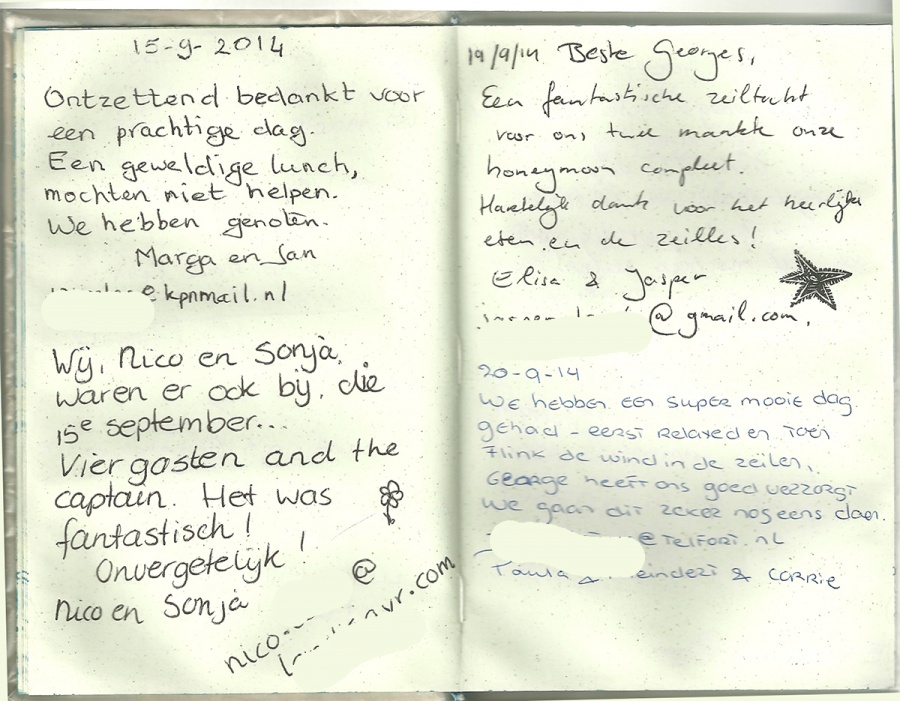 15-9-2014
Ontzettend bedankt voor
een prachtige dag.
Een geweldige lunch,
mochten niet helpen.
We hebben genoten.
Marga en Jan
@kpnmail.nl
Wij, Nico en Sonja,
waren er ook bij, die
15e september...
Vier gasten and the
captain. Het was
fantastisch!
Onvergetelijk!
@
Nico en Sonja
nico
nvr.com
19/9/14 Beste Georges,
Een fantastische zeiltocht
voor ons twee maakte onze
honeymoon compleet.
Hartelijk dank voor het heerlijke
eten en de zeilles!
Elisa & Jasper
@gmail.com,
20-9-14
We hebben een super mooie dag
gehad - eerst relaxed en toen
flink de wind in de zeilen,
George heeft ons goed verzorgt
We gaan dit zeker nog eens doen.
@TELFORT.nl
& CORRIE